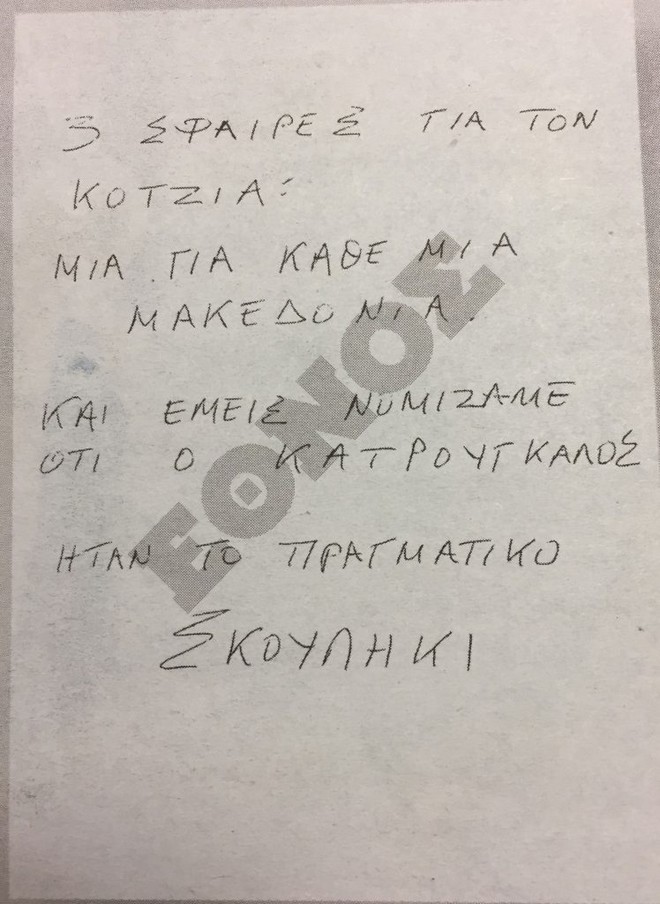 3 ΣΦΑΙΡΕΣ ΓΙΑ ΤΟΝ
ΚΟΤΖΙΑ:
ΜΙΑ ΓΙΑ ΚΑΘΕ ΜΙΑ
ΜΑΚΕΔΟΝΙΑ.
ΚΑΙ ΕΜΕΙΣ ΝΟΜΙΖΑΜΕ
ΟΤΙ Ο ΚΑΤΡΟΥΓΚΑΛΟΣ
ΗΤΑΝ ΤΟ ΠΡΑΓΜΑΤΙΚΟ
ΣΚΟΥΛΗΚΙ
ΕΘΝΟΣ